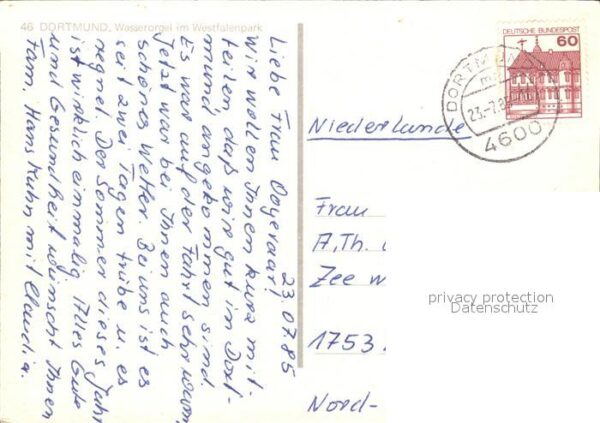 46 DORTMUND, Wasserorgel im Westfalenpark
23.07.85
Liebe Frau
Wir wollen Ihnen kurz mit-
teilen, daß wir gut in Dort-
mund, angekommen sind.
Es war auf der Fahrt sehr warm,
Jetzt war bei Ihnen auch
schönes Wetter. Bei uns ist es
seit zwei Tagen trübe u. es
regnet. Der Sommer dieses Jahr
ist wirklich einmalig. Alles Gute
und Gesundheit wünscht Ihnen
Fam. Hans Kuhn mit Claudia.
DEUTSCHE BUNDESPOST
60
DORTMUND
23.-7.85
4600
Niederlande
Frau
A. Th.
Zee w
1753
Nord-
privacy protection
Datenschutz